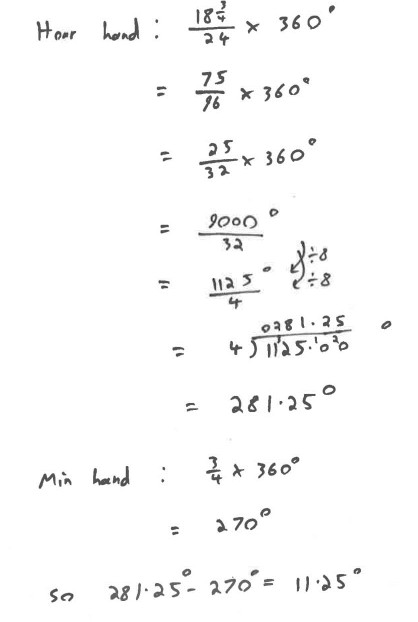 Hour hand : 18 3/4 / 24 × 360°
= 75/96 × 360°
= 25/32 × 360°
= 9000/32 °
÷8
= 1125/4 ° ÷8
0281.25 °
= 4)1125.00
= 281.25°
Min hand : 3/4 × 360°
= 270°
so 281.25° - 270° = 11.25°